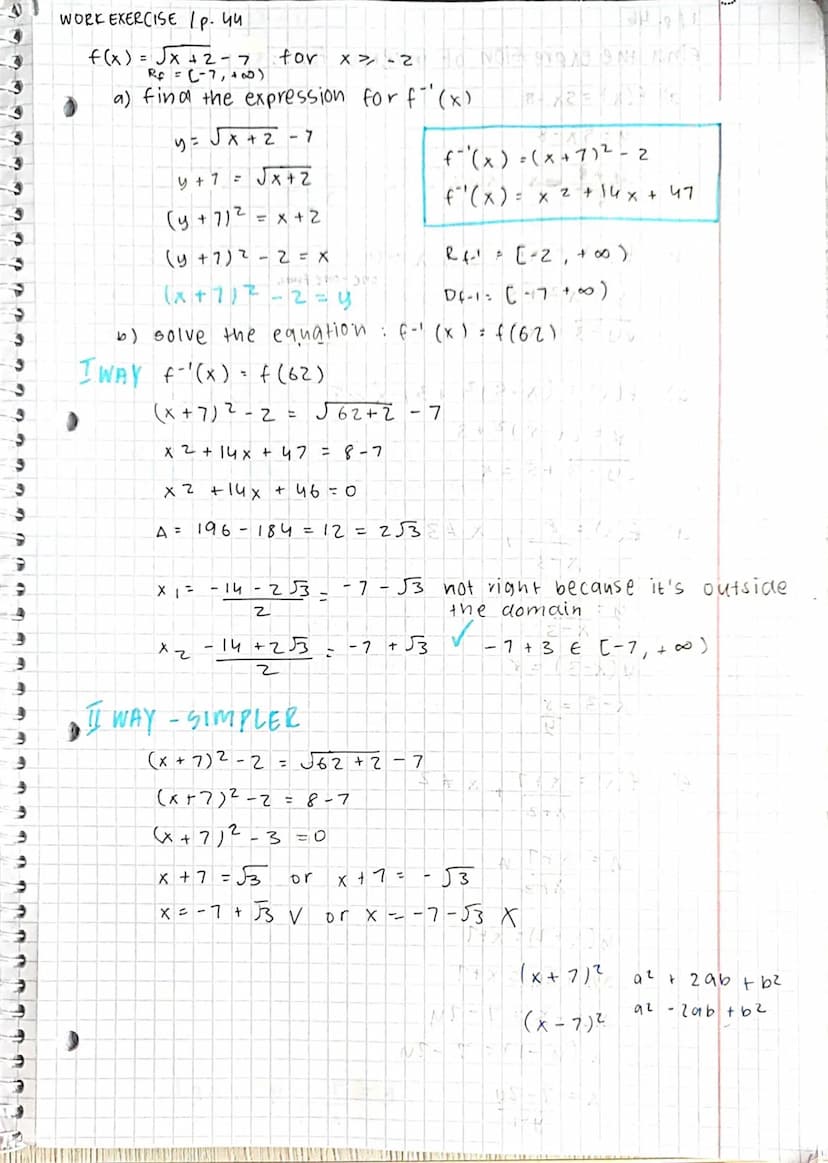 WORK EXERCISE 1 p. 44
f(x) = √x + 2 - 7 for x ≥ -2
Rf = [-7, +∞)
a) find the expression for f⁻¹(x)
y = √x + 2 - 7
y + 7 = √x + 2
(y + 7)² = x + 2
(y + 7)² - 2 = x
(x + 7)² - 2 = y
f⁻¹(x) = (x + 7)² - 2
f⁻¹(x) = x² + 14x + 47
Rf-1 = [-2, +∞)
Df-1 = [-7 +∞)
b) solve the equation : f-¹(x) = f(62)
I WAY f-¹(x) = f(62)
(x + 7)² - 2 = √62 + 2 - 7
x² + 14x + 47 = 8 - 7
x² + 14x + 46 = 0
Δ = 196 - 184 = 12 = 2√3
x1 = -14 - 2√3 / 2 = -7 - √3 not right because it's outside
the domain
x2 -14 + 2√3 / 2 = -7 + √3 ✓ -7 + 3 ∈ [-7, +∞)
II WAY - SIMPLER
(x + 7)² - 2 = √62 + 2 - 7
(x + 7)² - 2 = 8 - 7
(x + 7)² - 3 = 0
x + 7 = √3 or x + 7 = -√3
x = -7 + √3 V or x = -7 - √3 X
(x + 7)² a² + 2ab + b²
(x - 7)² a² - 2ab + b²